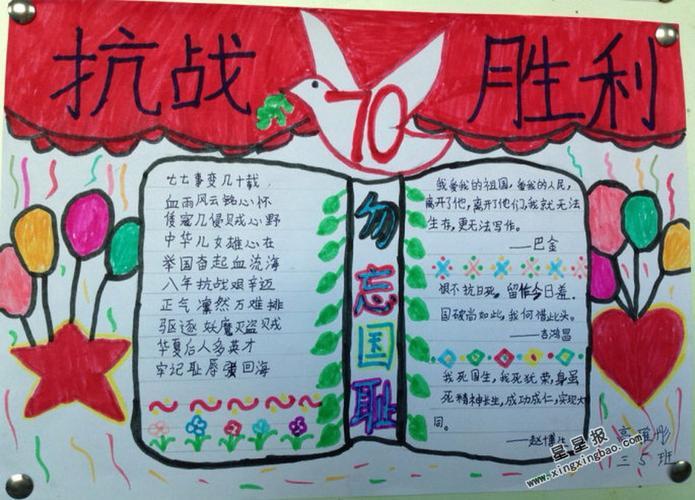 抗战 胜利
70
七七事变几十载,
血雨风云铭心怀
倭寇几侵贝戎心野
中华儿女雄心在
举国奋起血流海
八年抗战艰辛迈
正气凛然万难排
驱逐妖魔灭盗贼
华夏后人多英才
牢记耻辱 回海
勿忘国耻
我爱我的祖国,爱我的人民,
离开了他,离开了他们,我就无法
生存,更无法写作。
——巴金
恨不抗日死,留作今日羞。
国破尚如此,我何惜此头。
——吉鸿昌
我死国生,我死犹荣,身虽
死精神长生,成功成仁,实现大
同。
——赵博生
三5班
星星报
www.xingxingbao.com